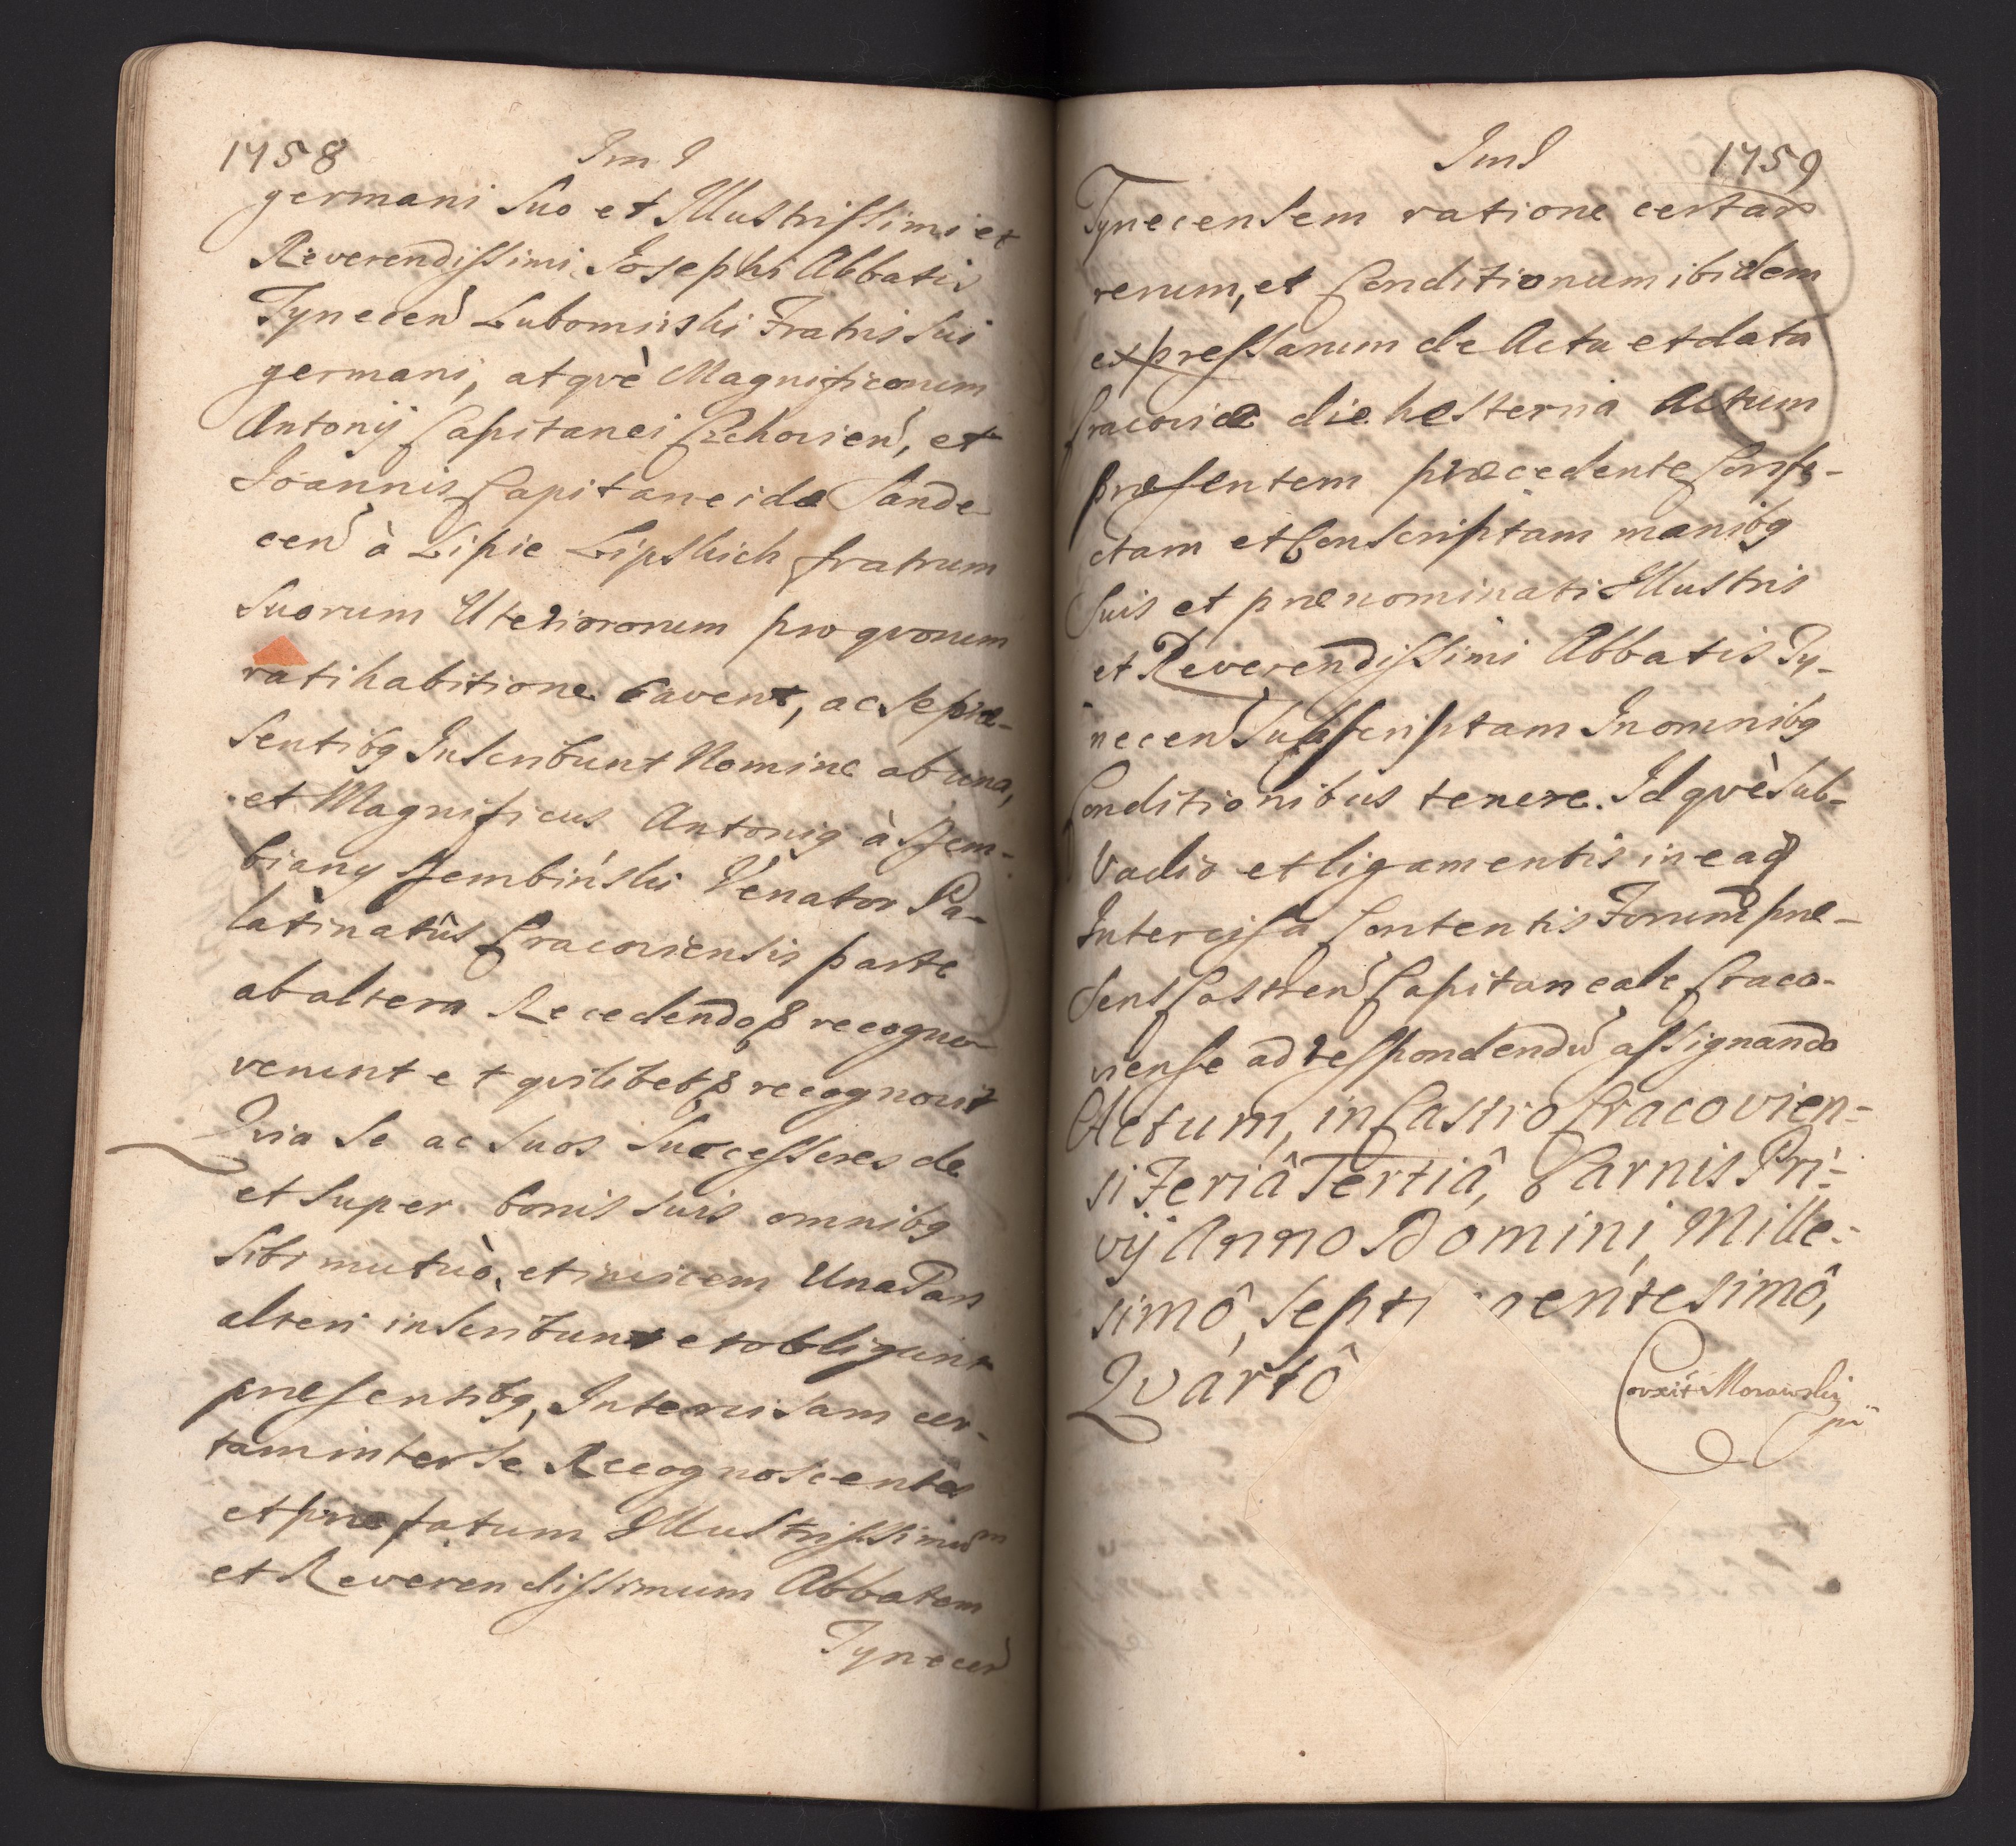 1758
germani Suo et Illustrissimi et
Reverendissimi Josephi Abbatis
Tynecen Lubomirski Fratris sui
germani, atqvè Magnificorum
Antonij Capitanei Czchovien, et
Joannis Capitaneidae Sande
cen à Lipie Lipskich fratrum
Suorum Uterinorum pro qvorum
ratihabitione Cavent, ac se prae-
sentibq Inscribunt Nomine ab una,
et Magnificus Antoniq à Szem-
bianq Szembiński Venator Pa-
latinatûs Cracoviensis parte
ab altera Recedendo recogno
verunt et qvilibet recognovit
Qvia Se ac Suos Successores de
et Super bonis suis omnibq
Sibi mutuò, et invicem Una Pars
alteri inscribunt et obligunt
praesentibq, Intercisam cer-
tam inter se Recognoscentes
et praefatum Illustrissimum
et Reverendissimum Abbatem
Tynecen
1759
Tynecensem ratione certar
rerum, et Conditionum ibidem
expressarum de Actu et data
Cracoviae die hesterna Actum
praesentem praecedente Confe-
ctam et Conscriptam manibq
Suis et praenominati Illustris
et Reverendissimi Abbatis Ty-
necen Subscriptam In omnibq
Conditionibus tenere. Idqvè sub-
Vadio et ligamentis in ead
Intercisa Contentis Forum prae-
sens Castren Capitaneale Craco-
viense ad respondendu assignando
Actum, in Castro Cracovien-
si Feriâ Tertiâ, Carnis Pri-
vij Anno Domini, Mille-
simô, Septi ngentesimô,
Qvartô
Corexit Morawski